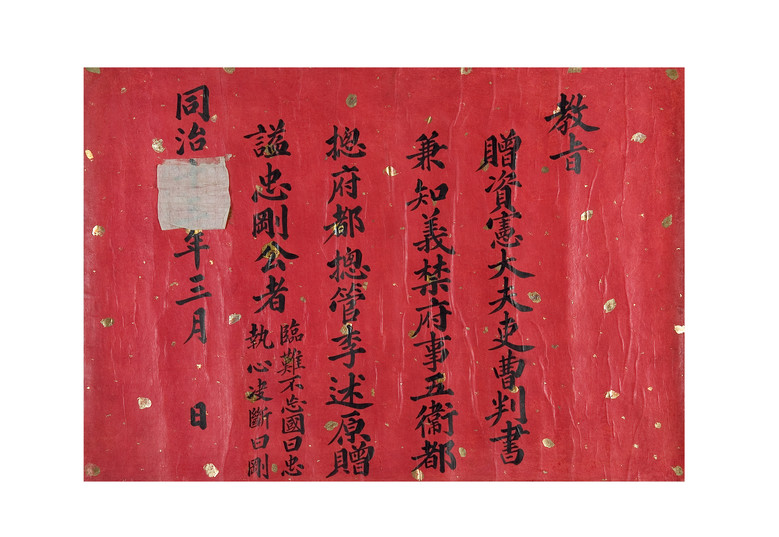 教旨
贈資憲大夫吏曹判書
兼知義禁府事五衛都
摠府都摠管李述原贈
諡忠剛公者
臨難不忘國曰忠
執心決斷曰剛
同治
年三月
日